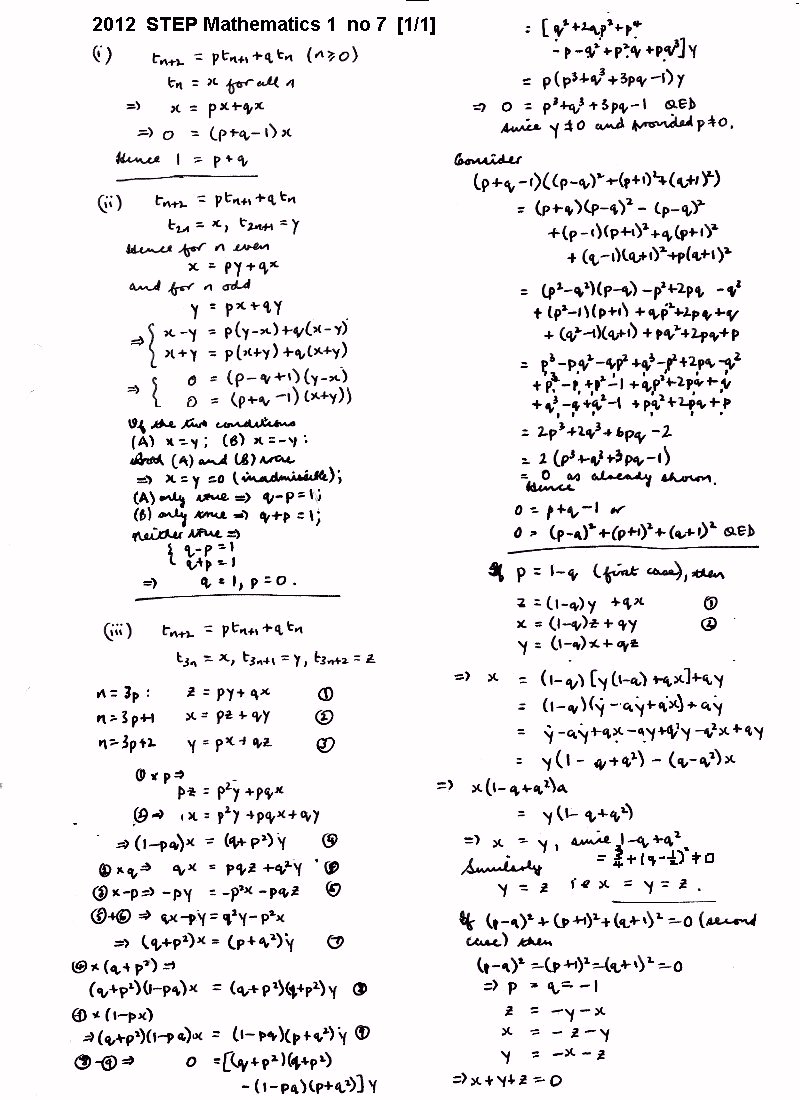 2012 STEP Mathematics 1 no 7 [1/1]
(i) tn+2 = ptn+1 + qtn (n≥0)
tn = x for all n
⇒ x = px+qx
⇒ 0 = (p+q-1)x
Hence 1 = p+q
(ii) tn+2 = ptn+1 + qtn
t2n = x, t2n+1 = y
Hence for n even
x = py+qx
and for n odd
y = px+qy
⇒ { x-y = p(y-x)+q(x-y)
x+y = p(x+y)+q(x+y)
⇒ { 0 = (p-q+1)(y-x)
0 = (p+q-1)(x+y)}
Of the two conditions
(A) x=y; (B) x=-y:
Both (A) and (B) true
⇒ x=y=0 (inadmissible);
(A) only true ⇒ q-p=1;
(B) only true ⇒ q+p=1;
neither true ⇒
{ q-p=1
q+p=1
⇒ q=1, p=0.
(iii) tn+2 = ptn+1 + qtn
t3n = x, t3n+1 = y, t3n+2 = z
n=3p: z = py+qx ①
n=3p+1 x = pz+qy ②
n=3p+2 y = px+qz ③
①×p ⇒
pz = p²y+pqx
② ⇒ x = p²y+pqx+qy
⇒ (1-pq)x = (q+p²)y ④
②×q ⇒ qx = pqz+q²y ⑤
③×-p ⇒ -py = -p²x-pqz ⑥
⑤+⑥ ⇒ qx-py = q²y-p²x
⇒ (q+p²)x = (p+q²)y ⑦
④×(q+p²) ⇒
(q+p²)(1-pq)x = (q+p²)(q+p²)y ⑧
×(1-px)
⇒ (q+p²)(1-pq)x = (1-pq)(p+q²)y ⑨
⑧-⑨ ⇒ 0 = [(q+p²)(q+p²)
-(1-pq)(p+q²)]y
= [q²+2qp²+p⁴
-p-q²+p²q+pq³]y
= p(p³+q³+3pq-1)y
⇒ 0 = p³+q³+3pq-1 QED
since y≠0 and provided p≠0.
Consider
(p+q-1)((p-q)²+(p+1)²+(q+1)²)
= (p+q)(p-q)² - (p-q)²
+(p-1)(p+1)²+q(p+1)²
+(q-1)(q+1)²+p(q+1)²
= (p²-q²)(p-q)-p²+2pq -q²
+(p²-1)(p+1)+qp²+2pq+q
+(q²-1)(q+1)+pq²+2pq+p
= p³-pq²-qp²+q³-p²+2pq-q²
+p³-p+p²-1+qp²+2pq+q
+q³-q+q²-1+pq²+2pq+p
= 2p³+2q³+6pq-2
= 2(p³+q³+3pq-1)
= 0 as already shown.
Hence
0 = p+q-1 or
0 = (p-q)²+(p+1)²+(q+1)² QED
If p = 1-q (first case), then
z = (1-q)y +qx ①
x = (1-q)z+qy ②
y = (1-q)x+qz
⇒ x = (1-q)[y(1-q)+qx]+qy
= (1-q)(y-qy+qx)+qy
= y-qy+qx-qy+q²y-q²x+qy
= y(1-q+q²)-(q-q²)x
⇒ x(1-q+q²)a
= y(1-q+q²)
⇒ x = y, since 1-q+q²
= ¾+(q-½)²≠0
Similarly
y = z ie x = y = z.
If (p-q)²+(p+1)²+(q+1)²=0 (second
case) then
(p-q)²=(p+1)²=(q+1)²=0
⇒ p = q = -1
z = -y-x
x = -z-y
y = -x-z
⇒ x+y+z=0